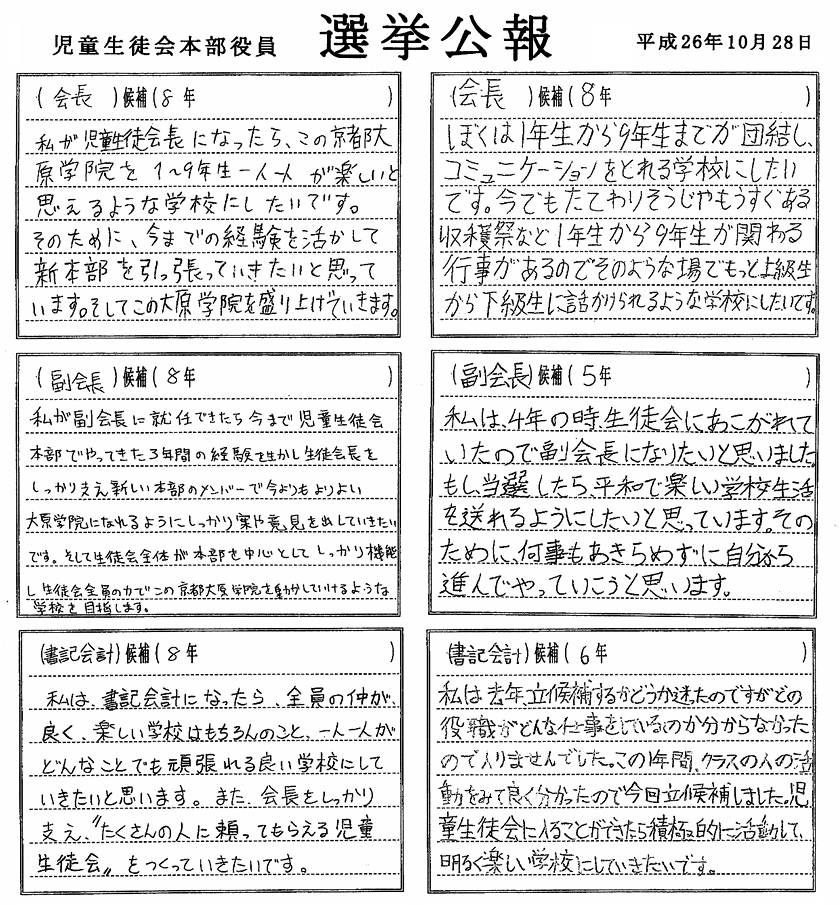 児童生徒会本部役員
選挙公報
平成26年10月28日
(会長)候補(8年)
私が児童生徒会長になったら、この京都大
原学院を1〜9年生一人一人が楽しいと
思えるような学校にしたいです。
そのために、今までの経験を活かして
新本部を引っ張っていきたいと思って
います。そしてこの大原学院を盛り上げていきます。
(会長)候補(8年
ぼくは1年生から9年生までが団結し、
コミュニケーションをとれる学校にしたい
です。今でもたてわりそうじやもうすぐある
収穫祭など1年生から9年生が関わる
行事があるのでそのような場でもっと上級生
から下級生に話かけられるような学校にしたいです。
(副会長)候補(8年)
私が副会長に就任できたら今まで児童生徒会
本部でやってきた3年間の経験を生かし生徒会長を
しっかり支え新しい本部のメンバーで今よりもよりよい
大原学院になれるようにしっかり案や意見を出していきたい
です。そして生徒会全体が本部を中心としてしっかり機能
し生徒会全員の力でこの京都大原学院を動かしていけるような
学校を目指します。
(副会長)候補(5年)
私は、4年の時、生徒会にあこがれて
いたので副会長になりたいと思いました。
もし、当選したら、平和で楽しい学校生活
を送れるようにしたいと思っています。その
ために、何事もあきらめずに自分から
進んでやっていこうと思います。
(書記会計)候補(8年)
私は、書記会計になったら、全員の仲が、
良く、楽しい学校はもちろんのこと、一人一人が
どんなことでも頑張れる良い学校にして
いきたいと思います。また、会長をしっかり
支え、〝たくさんの人に頼ってもらえる児童
生徒会〟をつくっていきたいです。
(書記会計)候補(6年)
私は去年、立候補するかどうか迷ったのですがどの
役職がどんな仕事をしているのか分からなかった
ので入りませんでした。この1年間、クラスの人の活
動をみて良く分かったので今回立候補しました。児
童生徒会に入ることができたら積極的に活動して、
明るく楽しい学校にしていきたいです。